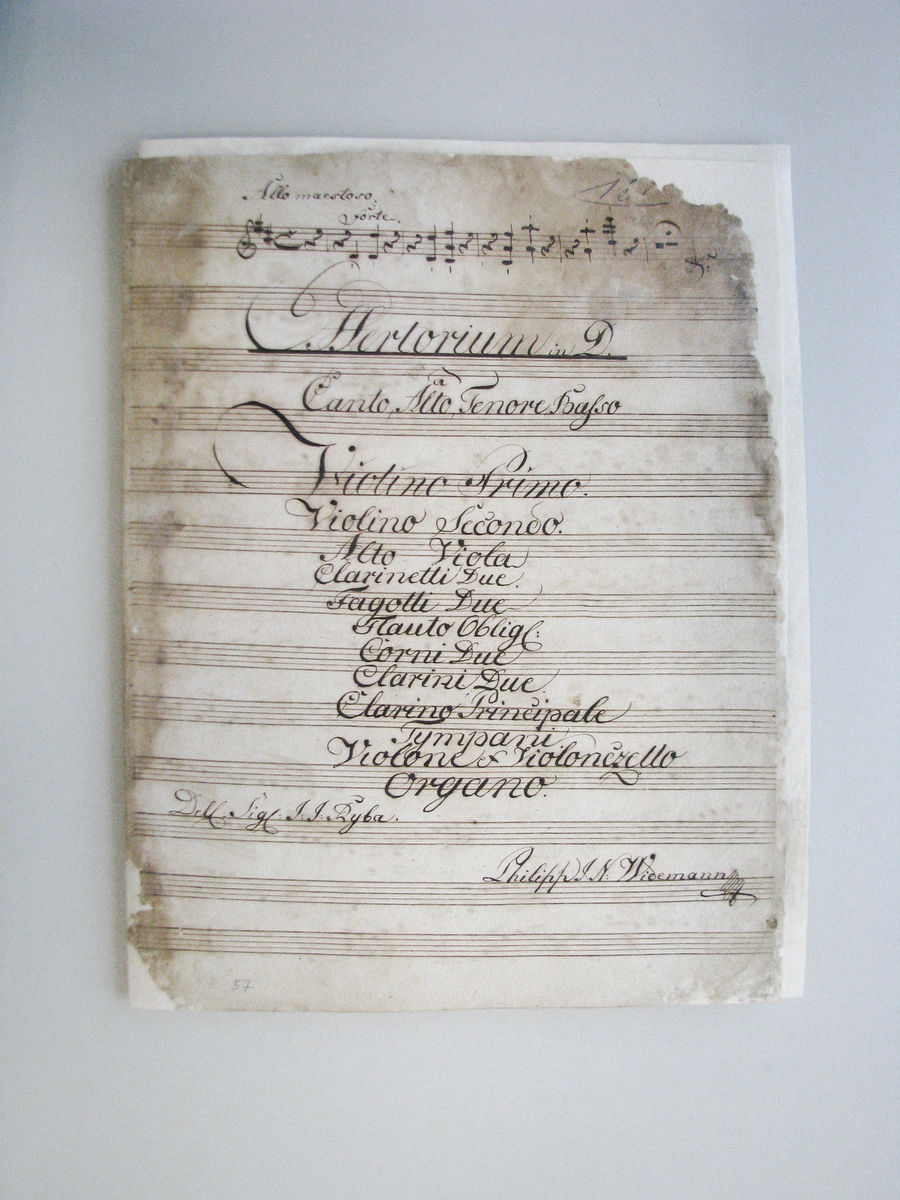 Allo maestoso.
forte.
Offertorium in D.
a
Canto, Alto, Tenore Basso
Violino Primo.
Violino Secondo.
Alto Viola
Clarinetti Due.
Fagotti Due
Flauto Oblig:
Corni Due
Clarini Due.
Clarino Principale
Tympani
Violone & Violonczello
Organo.
Dell Sig: J: J: Ryba.
Philipp J. N: Widemann
57